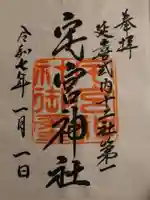 奉拝
延喜式内十二社第一
宅宮神社
令和七年一月一日